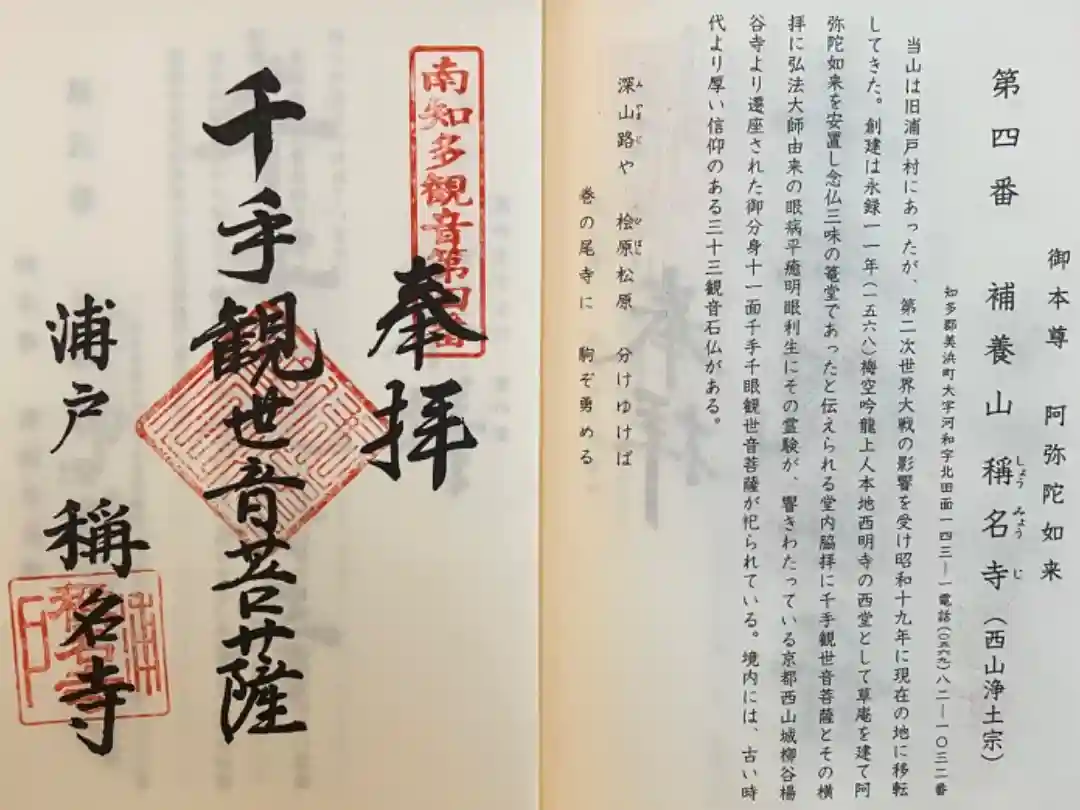 第四番　補養山　稱名寺（西山浄土宗）
しょうみょうじ
御本尊　阿弥陀如来
知多郡美浜町大字河和字北田面一四三―一電話(〇五六九)八二―一〇三二番
当山は旧浦戸村にあったが、第二次世界大戦の影響を受け昭和十九年に現在の地に移転
してきた。創建は永録一一年(一五六八)梅空吟龍上人本地西明寺の西堂として草庵を建て阿
弥陀如来を安置し念仏三昧の菴堂であったと伝えられる堂内脇拝に千手観世音菩薩とその横
拝に弘法大師由来の眼病平癒明眼利生にその霊験が、響きわたっている京都西山城柳谷楊
谷寺より遷座された御分身十一面千手千眼観世音菩薩が祀られている。境内には、古い時
代より厚い信仰のある三十三観音石仏がある。
深山路や　桧原松原　分けゆけば
みやまじ　ひばら
巻の尾寺に　駒ぞ勇める
南知多観音第四番
奉拝
千手観世音菩薩
浦戸　稱名寺